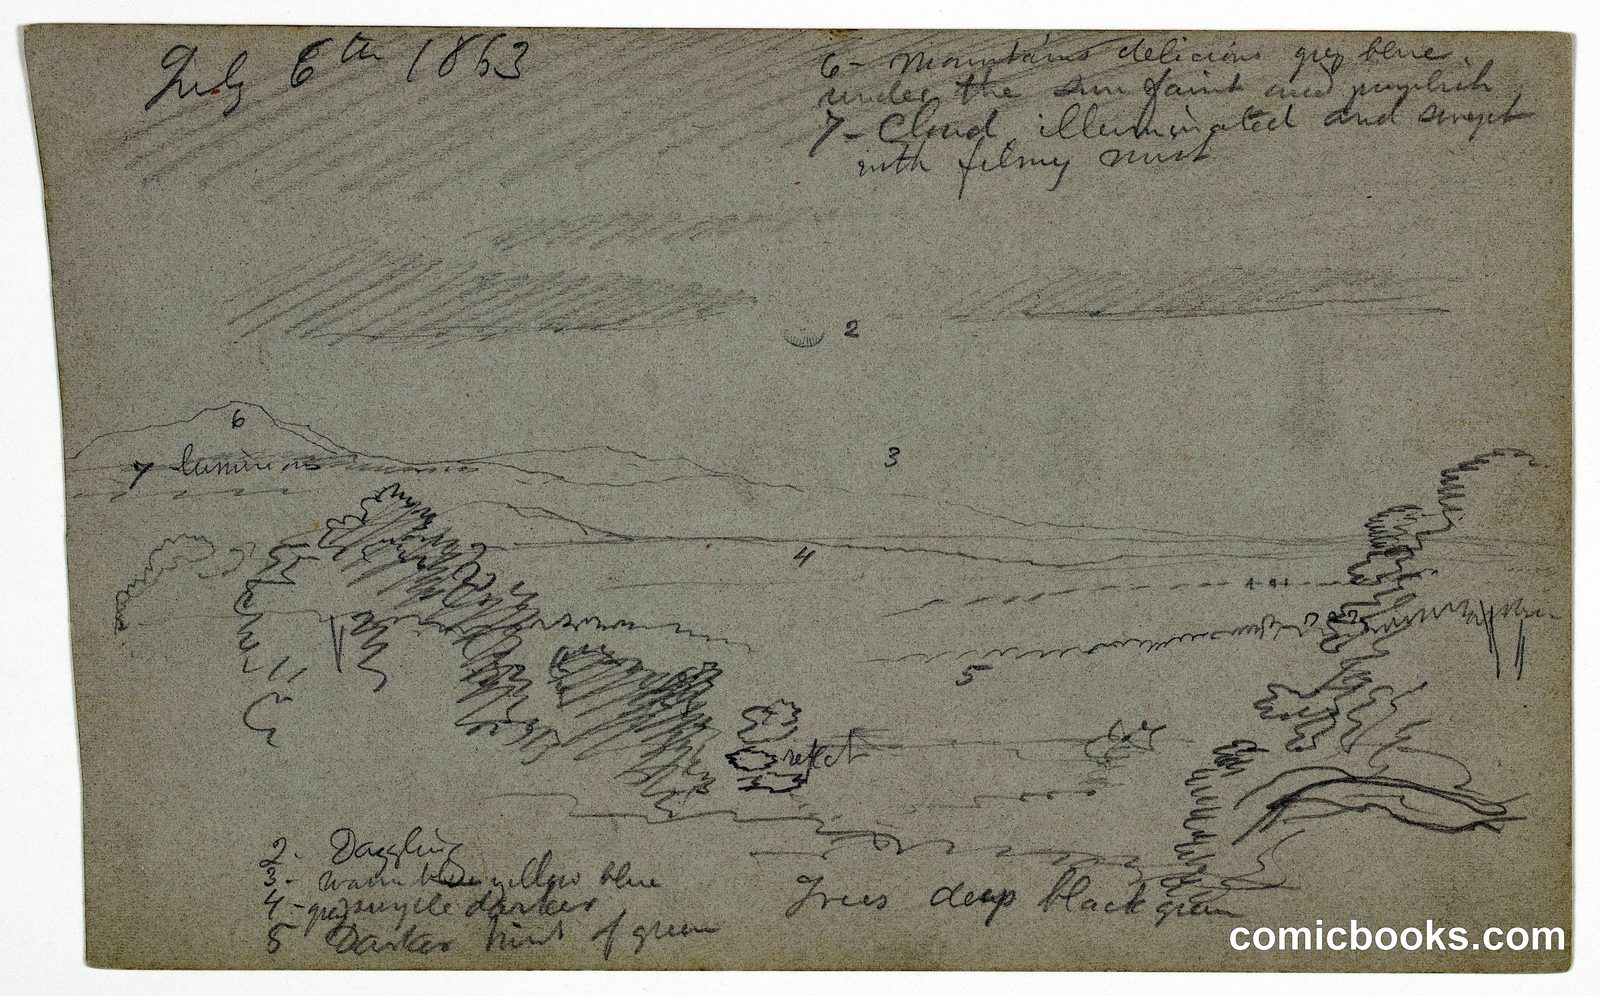 July 6th 1863
6 - Mountains delicious grey blue
under the sun faint and purplish
7 - Cloud illuminated and swept
with filmy mist
2
6
7 luminous
3
4
5
reflect
2 - Dazzling
3 - warm blue yellow blue
4 - grey purple darker
5 Darker tint of green
Trees deep black green
comicbooks.com